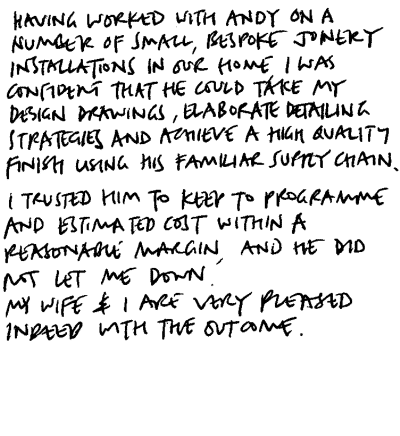 HAVING WORKED WITH ANDY ON A
NUMBER OF SMALL, BESPOKE JOINERY
INSTALLATIONS IN OUR HOME, I WAS
CONFIDENT THAT HE COULD TAKE MY
DESIGN DRAWINGS, ELABORATE DETAILING
STRATEGIES AND ACHIEVE A HIGH QUALITY
FINISH USING HIS FAMILIAR SUPPLY CHAIN.
I TRUSTED HIM TO KEEP TO PROGRAMME
AND ESTIMATED COST WITHIN A
REASONABLE MARGIN, AND HE DID
NOT LET ME DOWN.
MY WIFE & I ARE VERY PLEASED
INDEED WITH THE OUTCOME.